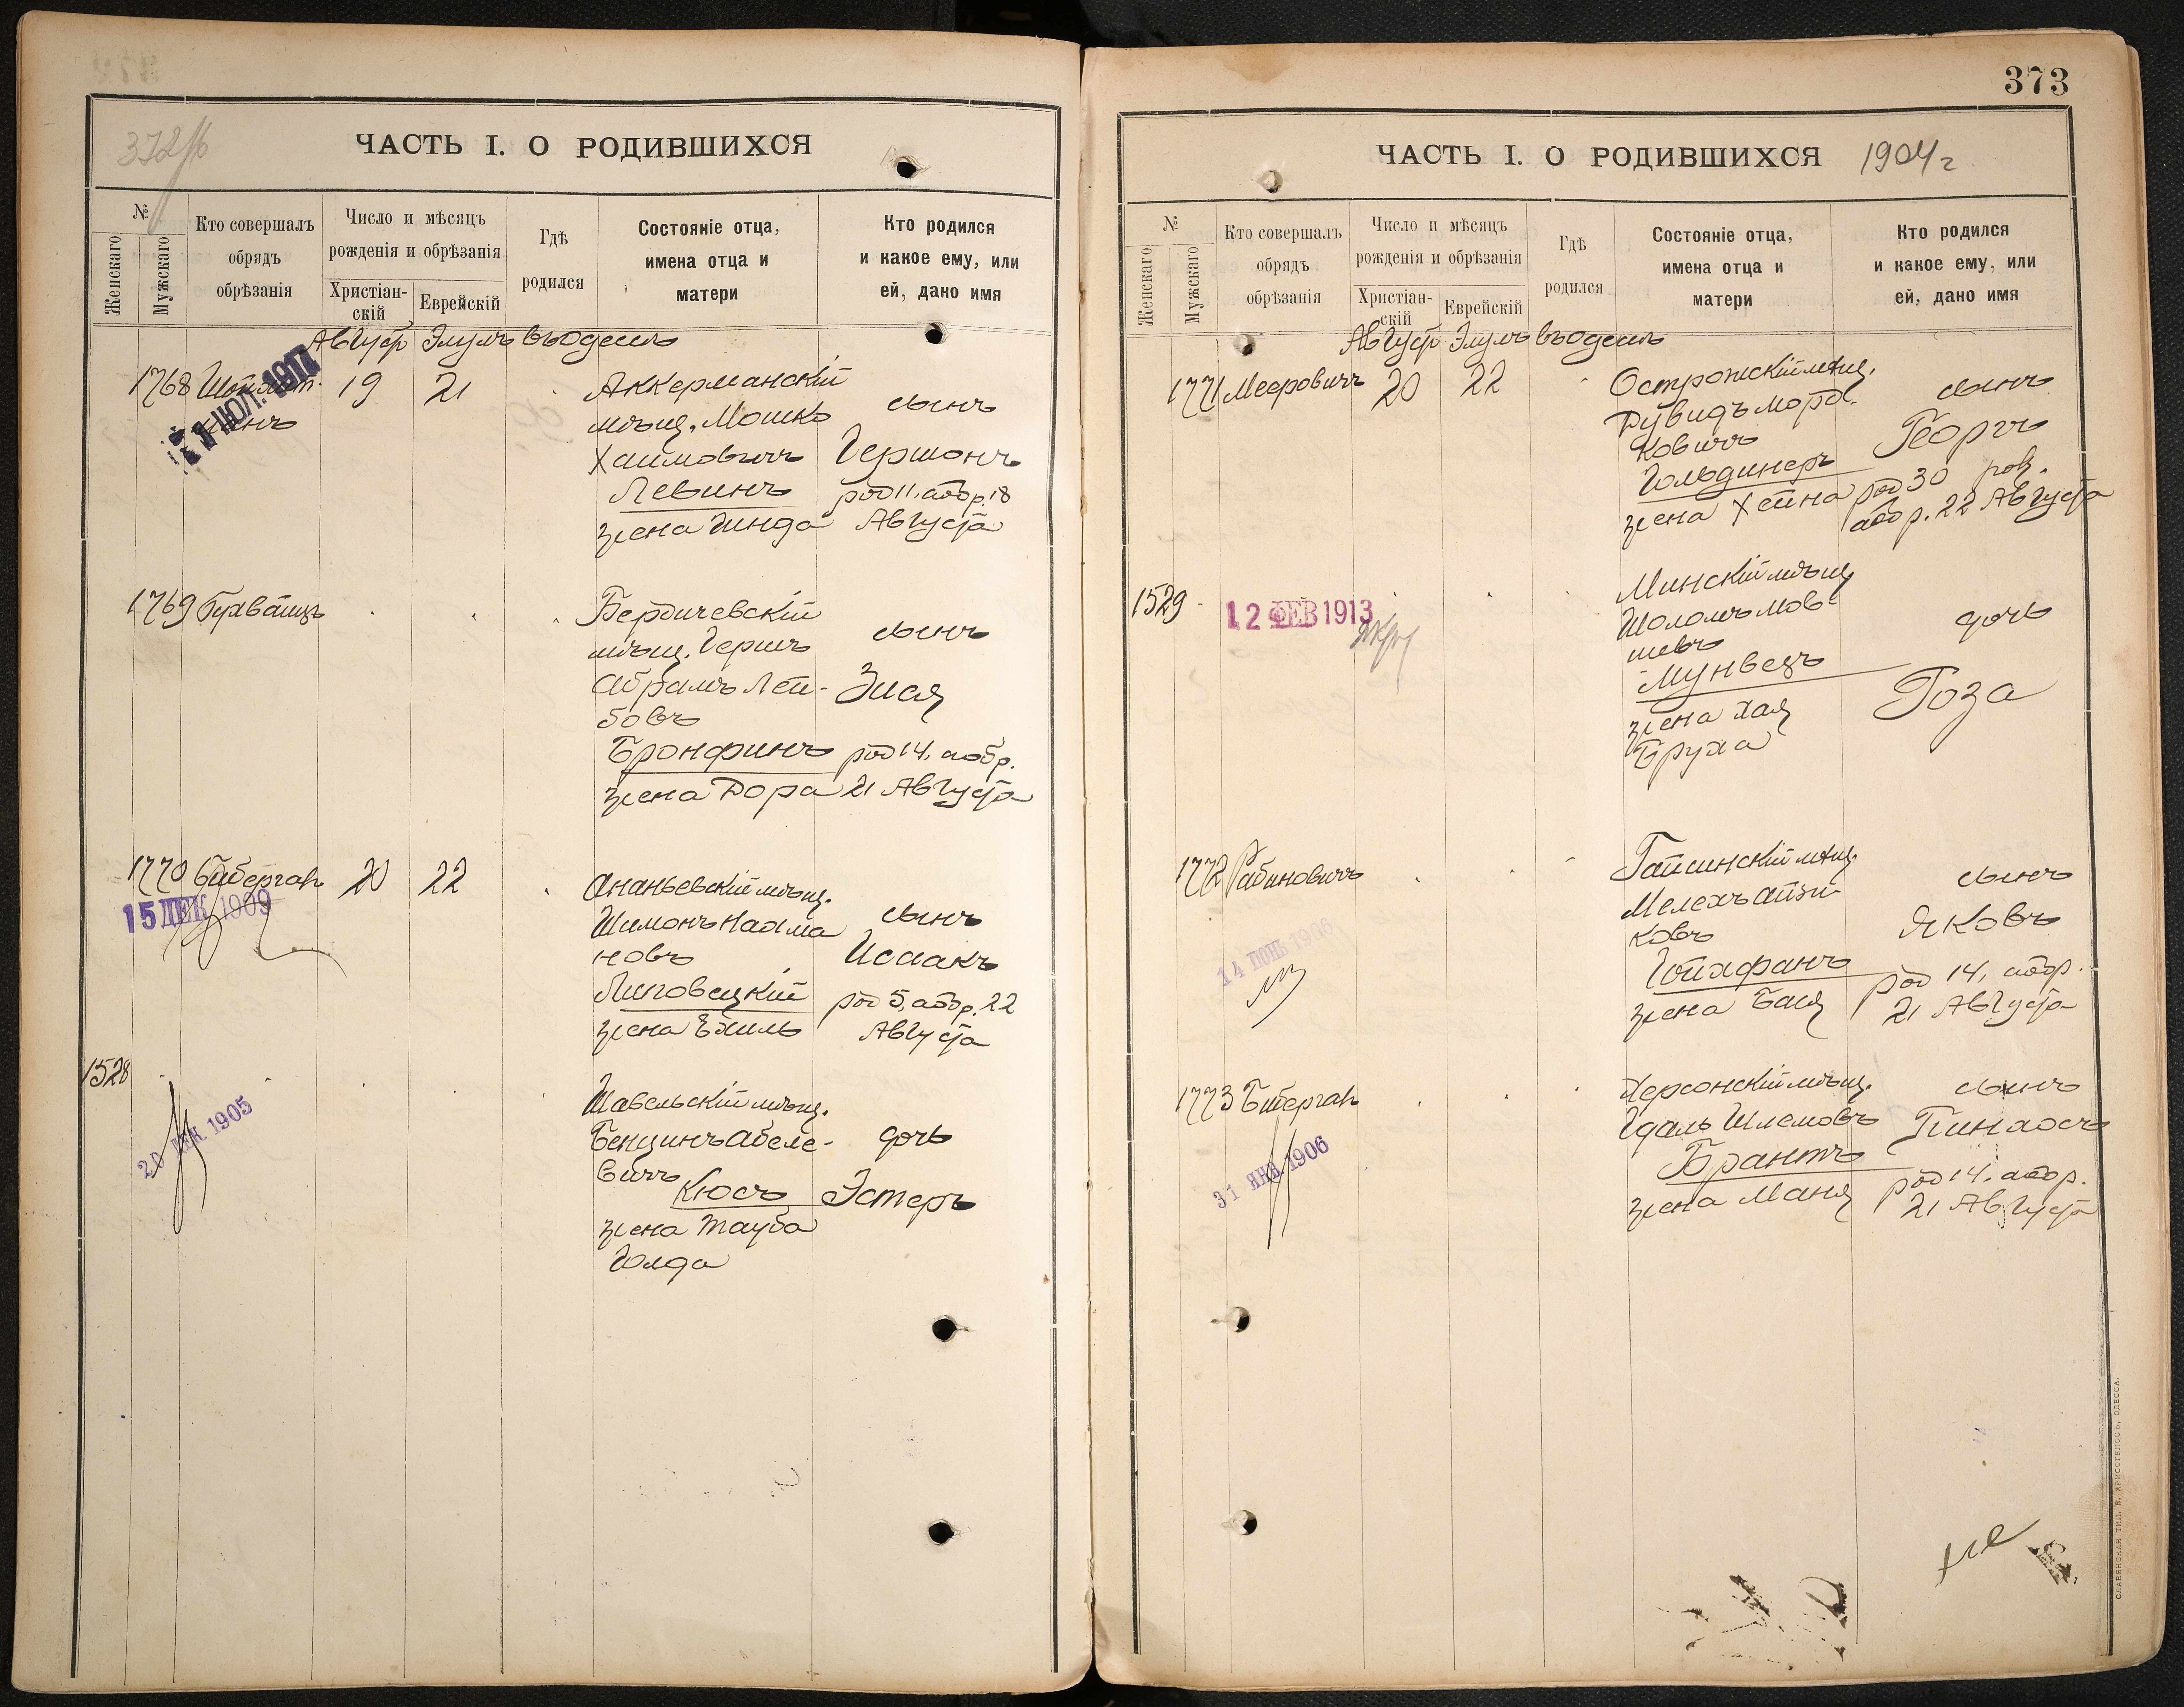 372
ЧАСТЬ I. О РОДИВШИХСЯ
№
Женскаго
Мужскаго
Кто совершалъ
обрядъ
обрѣзанія
Число и мѣсяцъ
рожденія и обрѣзанія
Христіан-
скій
Еврейскій
Гдѣ
родился
Состояніе отца,
имена отца и
матери
Кто родился
и какое ему, или
ей, дано имя
Август Элулъ въ Одессѣ
1768
19 21
Аккерманскій
мѣщ. Мошко
Хаимовичъ
Левинъ
жена Гинда
сынъ
Гершонъ
род 11, обр. 18
Августа
1769
Бердичевскій
мѣщ. Гершъ
Абрамъ Лей-
бовъ
Бронфинъ
жена Дора
сынъ
Зися
род 14, обр.
21 Августа
1770 Бибергал
20 22
15 ДЕК 1909
Ананьевскій мѣщ.
Шимонъ Нахма
новъ
Липовецкій
жена Ехиль
сынъ
Исаакъ
род 5, обр. 22
Августа
1528
20 ДЕК. 1905
Шавельскій мѣщ.
Бенцинъ Абеле-
вичъ
Кюсъ
жена Тауба
Голда
дочь
Эстеръ
373
ЧАСТЬ I. О РОДИВШИХСЯ 1904 г
№
Женскаго
Мужскаго
Кто совершалъ
обрядъ
обрѣзанія
Число и мѣсяцъ
рожденія и обрѣзанія
Христіан-
скій
Еврейскій
Гдѣ
родился
Состояніе отца,
имена отца и
матери
Кто родился
и какое ему, или
ей, дано имя
Август Элулъ въ Одессѣ
1771 Мееровичъ 20 22
Острожскій мѣщ.
Дувидъ Морд-
ковичъ
Гольдинеръ
жена Хейна
сынъ
Георгъ
род 30
обр. 22 Августа
1529
12 ФЕВ 1913
Минскій мѣщ
Шоломъ Мов-
шевъ
Мунвезъ
жена Хая
Бруха
дочь
Роза
1772 Рабиновичъ
14 ІЮНЬ 1906
Гайсинскій мѣщ.
Мелехъ Айзи-
ковъ
Гойхфанъ
жена Бася
сынъ
Яковъ
род 14, обр.
21 Августа
1773 Бибергал
31 ЯНВ. 1906
Херсонскій мѣщ.
Идаль Шлемовъ
Брантъ
жена Маня
сынъ
Пинхосъ
род 14, обр.
21 Августа
СЛАВЯНСКАЯ ТИП. Е. ХРИСОГЕЛОСЪ, ОДЕССА.